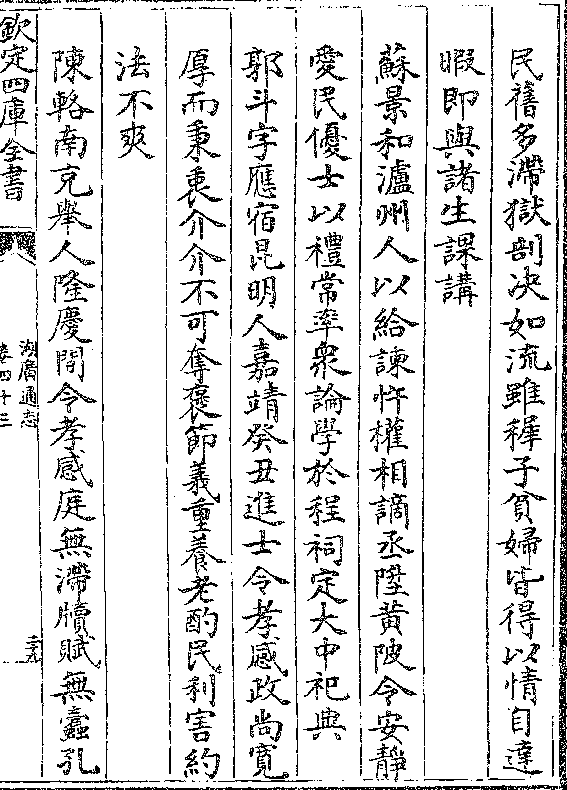 民舊多滯獄剖决如流雖稺子貧婦皆得以情自達
暇即與諸生課講
蘇景和瀘州人以給諫忤權相謫丞陞黄陂令安靜
愛民優士以禮常率衆論學於程祠定大中祀典
郭斗字應宿昆明人嘉靖癸丑進士令孝感政尚寛
厚而秉衷介介不可奪褒節義重養老酌民利害約
法不爽
陳輅南充舉人隆慶間令孝感庭無滯牘賦無蠹孔
欽定四庫全書
湖廣通志
卷四十三